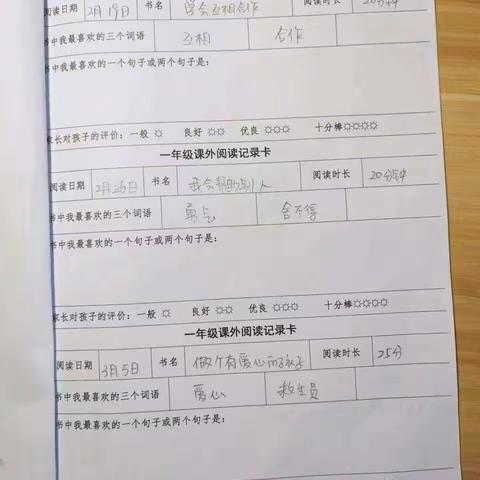 阅读日期 2月19日 书名 学会互相合作 阅读时长 20分钟
书中我最喜欢的三个词语 互相 合作
书中我最喜欢的一个句子或两个句子是：
家长对孩子的评价：一般 ☼ 良好 ☼☼ 优良 ☼☼☼ 十分棒☼☼☼☼
一年级课外阅读记录卡
阅读日期 2月26日 书名 我会帮助别人 阅读时长 20分钟
书中我最喜欢的三个词语 勇气 舍不得
书中我最喜欢的一个句子或两个句子是：
家长对孩子的评价：一般 ☼ 良好 ☼☼ 优良 ☼☼☼ 十分棒☼☼☼☼
一年级课外阅读记录卡
阅读日期 3月5日 书名 做个有爱心的孩子 阅读时长 25分
书中我最喜欢的三个词语 爱心 救生员
书中我最喜欢的一个句子或两个句子是：